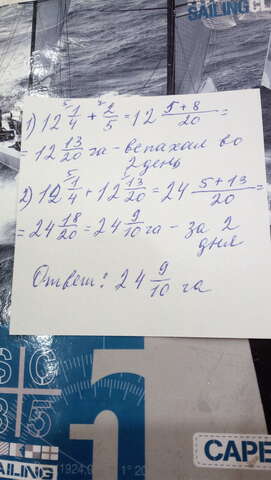 SAILING CL
1) 12 1/4 + 2/5 = 12 (5+8)/20 =
= 12 13/20 га - вспахал во
2 день
2) 12 1/4 + 12 13/20 = 24 (5+13)/20 =
= 24 18/20 = 24 9/10 га - за 2
дня
Ответ: 24 9/10 га
5
CAPE
AILING